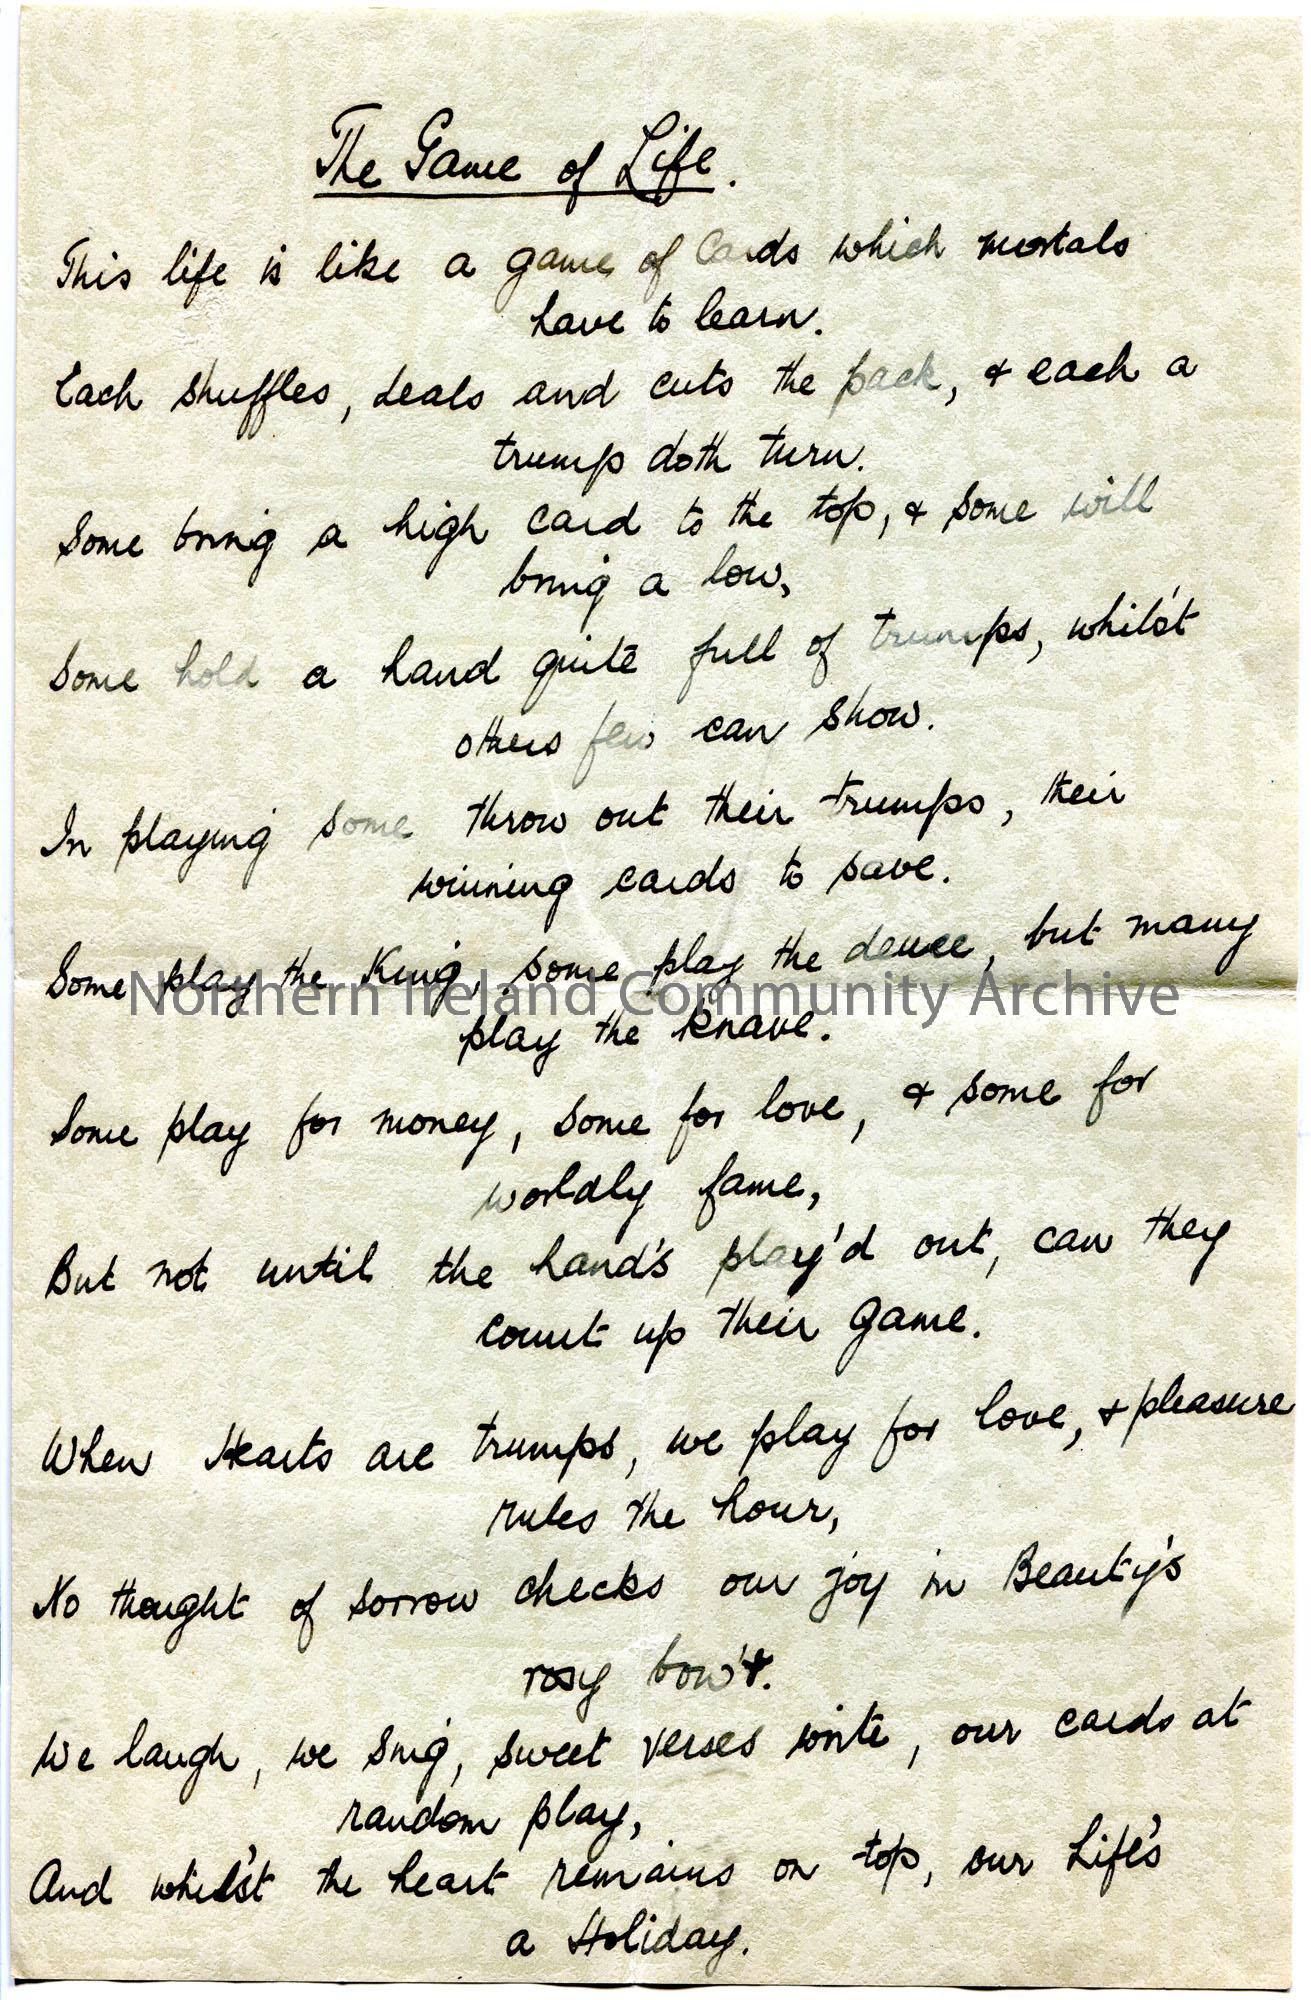 The Game of Life.
This life is like a game of Cards which mortals
have to learn.
Each shuffles, deals and cuts the pack, & each a
trump doth turn.
Some bring a high card to the top, & some will
bring a low,
Some hold a hand quite full of trumps, whils't
others few can show.
In playing some throw out their trumps, their
winning cards to save.
Some play the King, some play the deuce, but many
Northern Ireland Community Archive
play the knave.
Some play for money, some for love, & some for
worldly fame,
But not until the hand's play'd out, can they
count up their game.
When Hearts are trumps, we play for love, & pleasure
rules the hour,
No thought of sorrow checks our joy in Beauty's
rosy bow'r.
We laugh, we sing, sweet verses write, our cards at
random play,
And whils't the heart remains on top, our Life's
a Holiday.